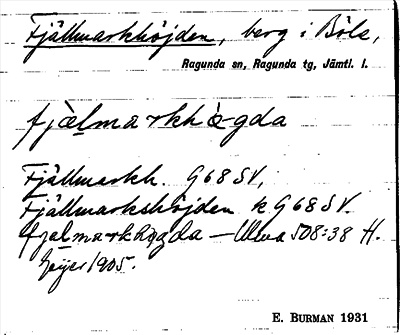 Fjällmarkhöjden, berg i Böle,
Ragunda sn, Ragunda tg, Jämtl. l.
fjæ̀l̥markhæ̀gda
Fjällmarkh. G68 SV,
Fjällmarkshöjden k G68 SV.
fjælmarkhøgda — Ulma 508:38 H.
Geijer 1905.
E. BURMAN 1931